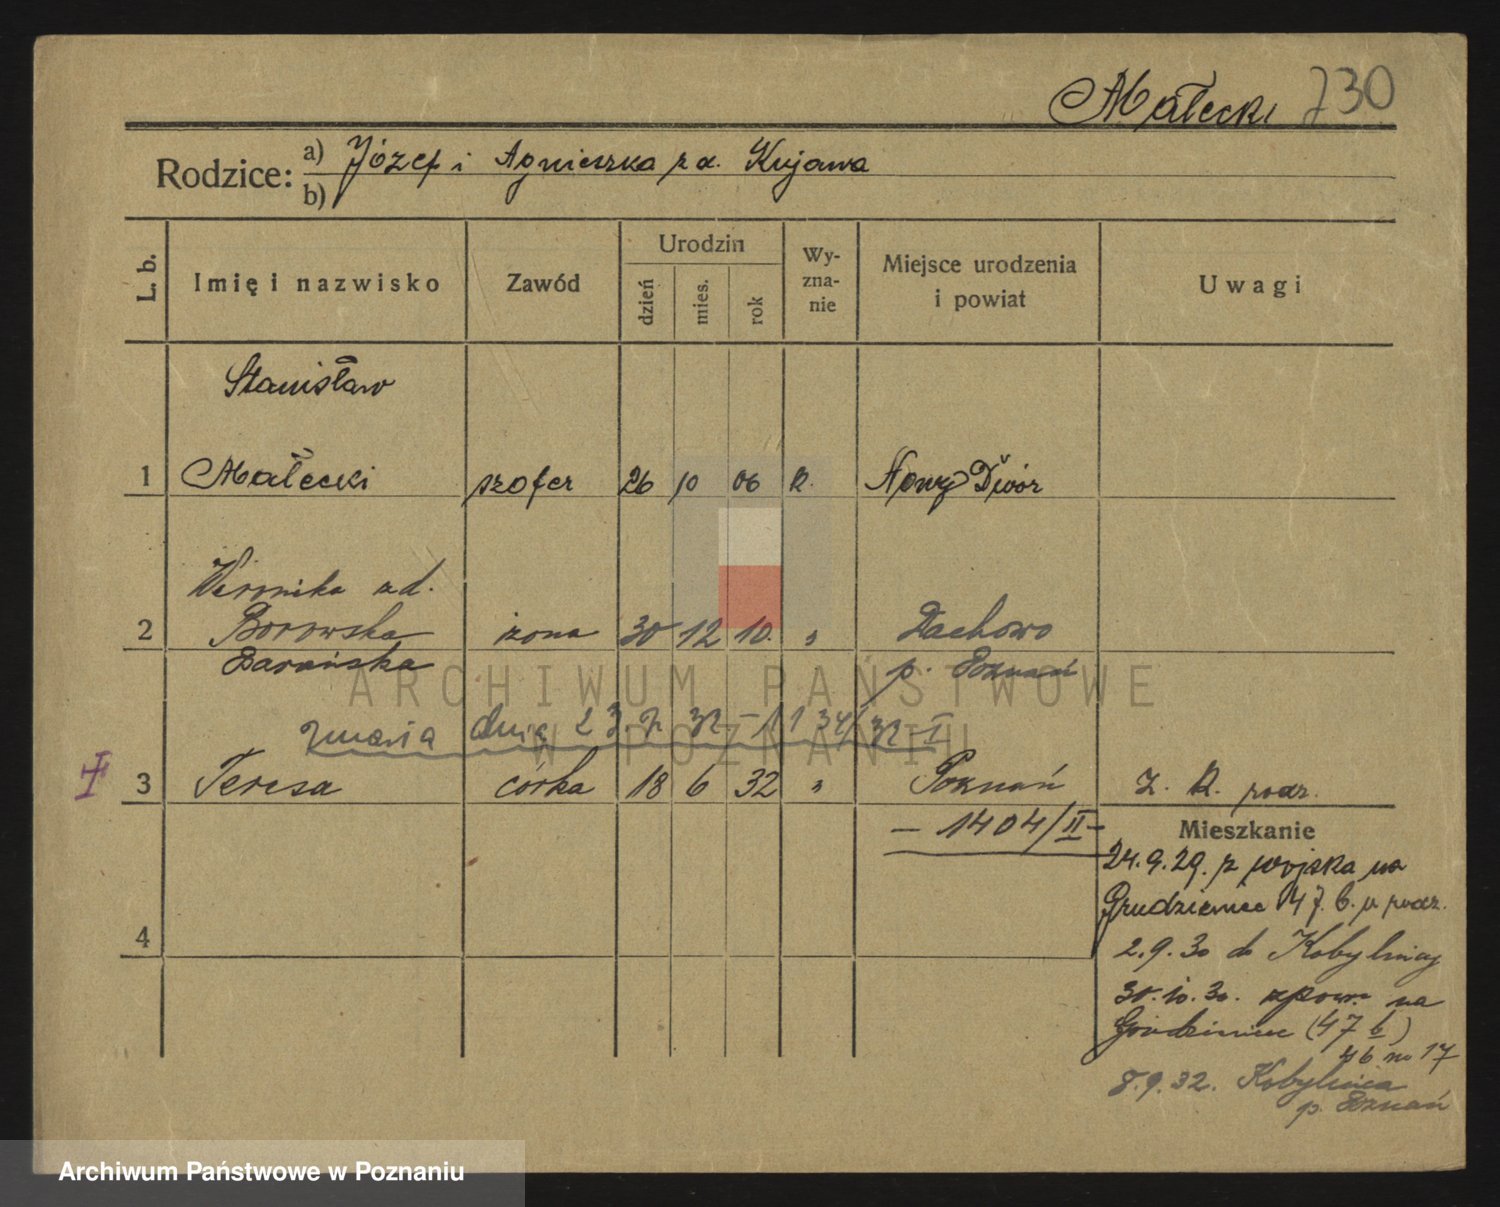 Małecki 730
Rodzice: a) Józef i Agnieszka z d. Kujawa
b)
L. b. Imię i nazwisko Zawód Urodzin dzień mies. rok Wy-zna-nie Miejsce urodzenia i powiat Uwagi
Stanisław
1 Małecki szofer 26 10 06 R. Nowy Dwór
Weronika z d.
2 Borowska żona 30 12 10. " Dachowo
Barańska p. Poznań
zmarła dnia 2 3. 7. 32
3 Teresa córka 18 6 32 " Poznań Z. R. podz.
– 1404/II –
Mieszkanie
24.9.29. z wojska na
Grudzieniec 47 b. u rodz.
4
2.9.30 do Kobylnicy
30.10.30. zpowr. na
Grudzieniec (47 b)
46 m 17
8.9.32. Kobylnica
p. Poznań
ARCHIWUM PAŃSTWOWE
W POZNANIU
Archiwum Państwowe w Poznaniu